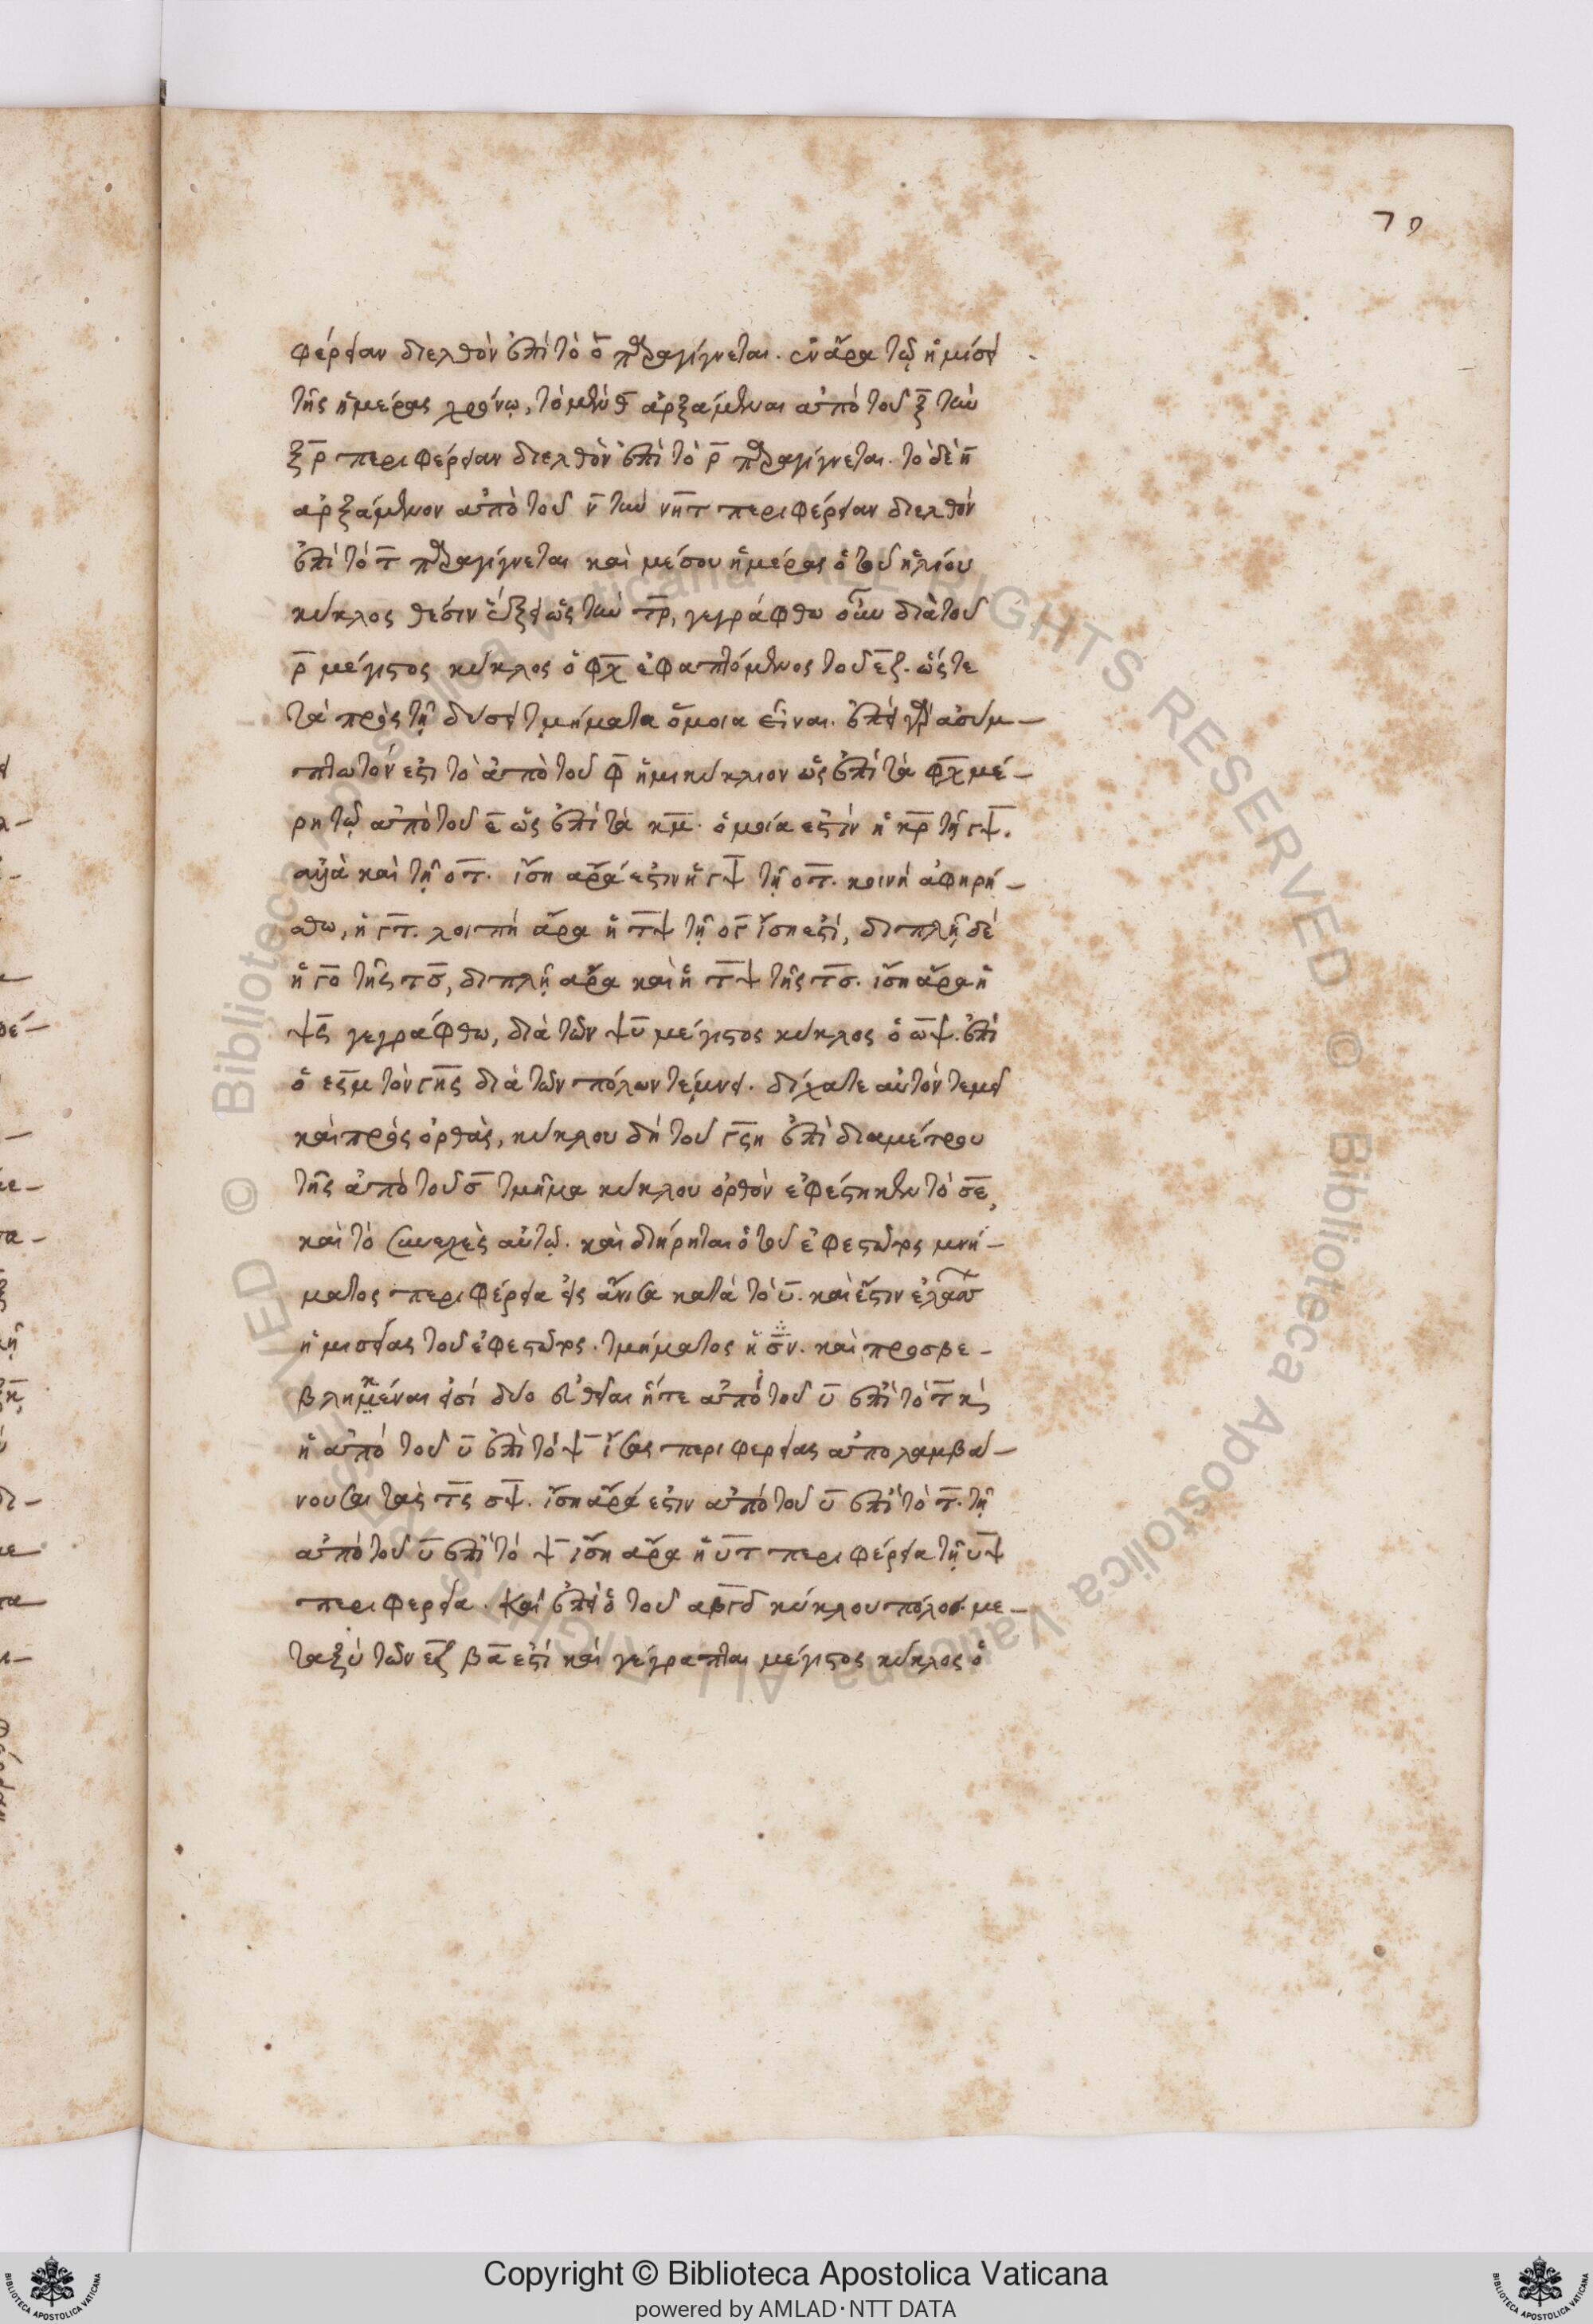 70
φέρειαν διελθὸν ἐπὶ τὸ ο̄ παραγίγνεται. ἐν ἄρα τῷ ἡμίσει
τῆς ἡμέρας χρόνῳ, τὸ μὲν θ̄ ἀρξάμεναι ἀπὸ τοῦ ξ̄ τὴν
ξ̄ρ̄ περιφέρειαν διελθὸν ἐπὶ τὸ ρ̄ παραγίγνεται. τὸ δὲ η̄
ἀρξάμενον ἀπὸ τοῦ ν̄ τὴν νη̄τ περιφέρειαν διελθὸν
ἐπὶ τὸ τ̄ παραγίγνεται καὶ μέσου ἡμέρας ὁ τοῦ ἡλίου
κύκλος θέσιν ἕξει ὡς τὴν τ̄ρ̄, γεγράφθω οὖν διὰ τοῦ
ρ̄ μέγιστος κύκλος ὁ φ̄χ̄ ἐφαπτόμενος τοῦ ε̄ζ. ὥστε
τὰ πρὸς τῇ δύσει τμήματα ὅμοια εἶναι. ἐπεὶ γὰρ ἀσύμ-
πτωτόν ἐστι τὸ ἀπὸ τοῦ φ̄ ἡμικύκλιον ὡς ἐπὶ τὰ φ̄χ̄ μέ-
ρη τῷ ἀπὸ τοῦ ε̄ ὡς ἐπὶ τὰ κ̄μ̄. ὁμοία ἐστὶν ἡ κ̄ρ̄ τῇ γ̄ψ̄.
ἀλλὰ καὶ τῇ ο̄π̄. ἴση ἄρα ἐστιν ἡ γ̄ψ̄ τῇ ο̄π̄. κοινὴ ἀφηρή-
σθω, ἡ γ̄τ̄. λοιπὴ ἄρα ἡ τ̄ψ τῇ ο̄γ̄ ἴση ἐστί, διπλῇ δὲ
ἡ γ̄ο̄ τῆς τ̄σ̄, διπλῇ ἄρα καὶ ἡ τ̄ψ τῆς τ̄σ. ἴση ἄρα ἡ
ψ̄ς̄ γεγράφθω, διὰ τῶν ψῡ μέγιστος κύκλος ὁ ω̄ψ. ἐπεὶ
ὁ ες̄μ τὸν γη̄ς διὰ τῶν πόλων τέμνει. δίχα τε αὐτὸν τεμεῖ
καὶ πρὸς ὀρθὰς, κύκλου δὴ τοῦ γ̄ς̄η ἐπὶ διαμέτρου
τῆς ἀπὸ τοῦ σ̄ τμῆμα κύκλου ὀρθὸν ἐφέστηκεν τὸ σ̄ε̄,
καὶ τὸ συνεχὲς αὐτῷ. καὶ διῄρηται ὁ τοῦ ἐφεστῶτος μνή-
ματος περιφέρεια εἰς ἄνισα κατὰ τὸ ῡ. καὶ ἔστιν
ἡμισείας τοῦ ἐφεστῶτος. τμήματος ἡ σ̄ν. καὶ προσβε-
βλημέναι εἰσὶ δύο εὐθεῖαι ἥτε ἀπὸ τοῦ ῡ ἐπὶ τὸ τ̄ κ̀
ἡ ἀπὸ τοῦ ῡ ἐπὶ τὸ ψ̄ ἴσας περιφερείας ἀπολαμβά-
νουσαι τὰς τ̄ς σψ̄. ἴση ἄρα ἐστιν ἀπὸ τοῦ ῡ ἐπὶ τὸ τ̄. τῇ
ἀπὸ τοῦ ῡ ἐπὶ τὸ ψ̄ ἴση ἄρα ἡ ῡτ̄ περιφέρεια τῇ ῡψ
περιφερεία. καὶ ἐπεὶ ὁ τοῦ αβ̄γδ κύκλου πόλος. με-
ταξὺ τῶν εζ̄ βᾱ ἐστί καὶ γέγραπται μέγιστος κύκλος ὁ
Copyright © Biblioteca Apostolica Vaticana
powered by AMLAD·NTT DATA